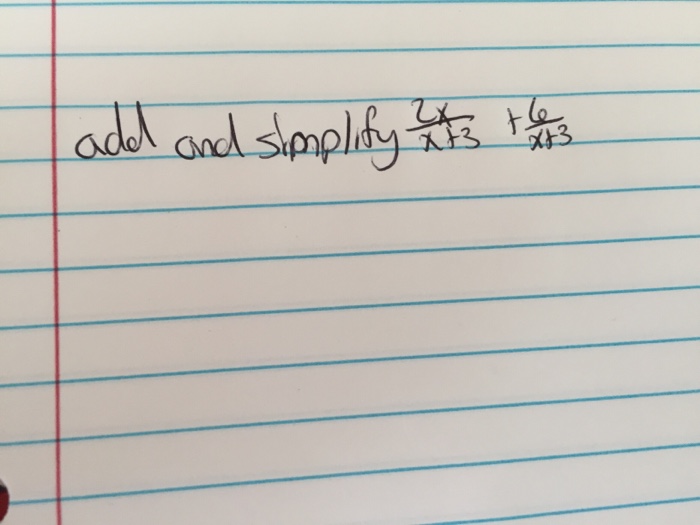 add and simplify 2x/x+3 + 6/x+3